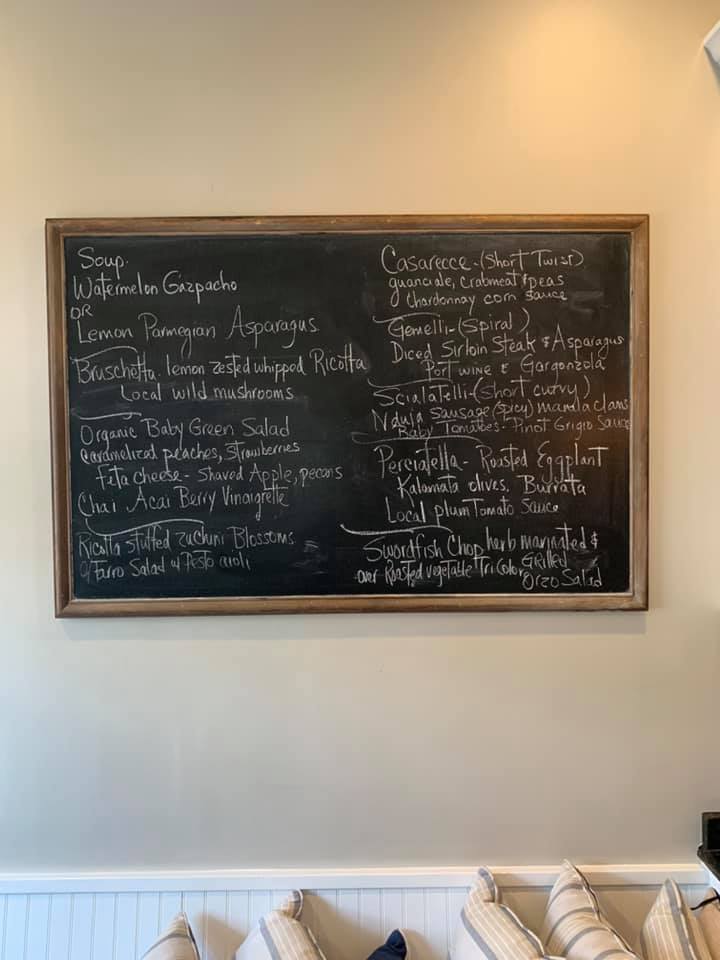 Soup.
Watermelon Gazpacho
OR
Lemon Parmegian Asparagus
Bruschetta. lemon zested whipped Ricotta
Local wild mushrooms
Organic Baby Green Salad
caramelized peaches, strawberries
Feta cheese - Shaved Apple, pecans
Chai Acai Berry Vinaigrette
Ricotta stuffed zuchini Blossoms
Farro Salad w/ Pesto aioli
Casarecce - (Short Twist)
guanciale, crabmeat & peas
Chardonnay corn sauce
Gemelli - (Spiral)
Diced Sirloin Steak & Asparagus
Port wine & Gorgonzola
Scialatelli - (Short curvy)
Nduja Sausage (spicy) manila clams
Baby Tomatoes - Pinot Grigio Sauce
Perciatella - Roasted Eggplant
Kalamata olives, Burrata
Local plum Tomato Sauce
Swordfish Chop herb marinated &
Grilled
over Roasted vegetable Tri Color
Orzo Salad